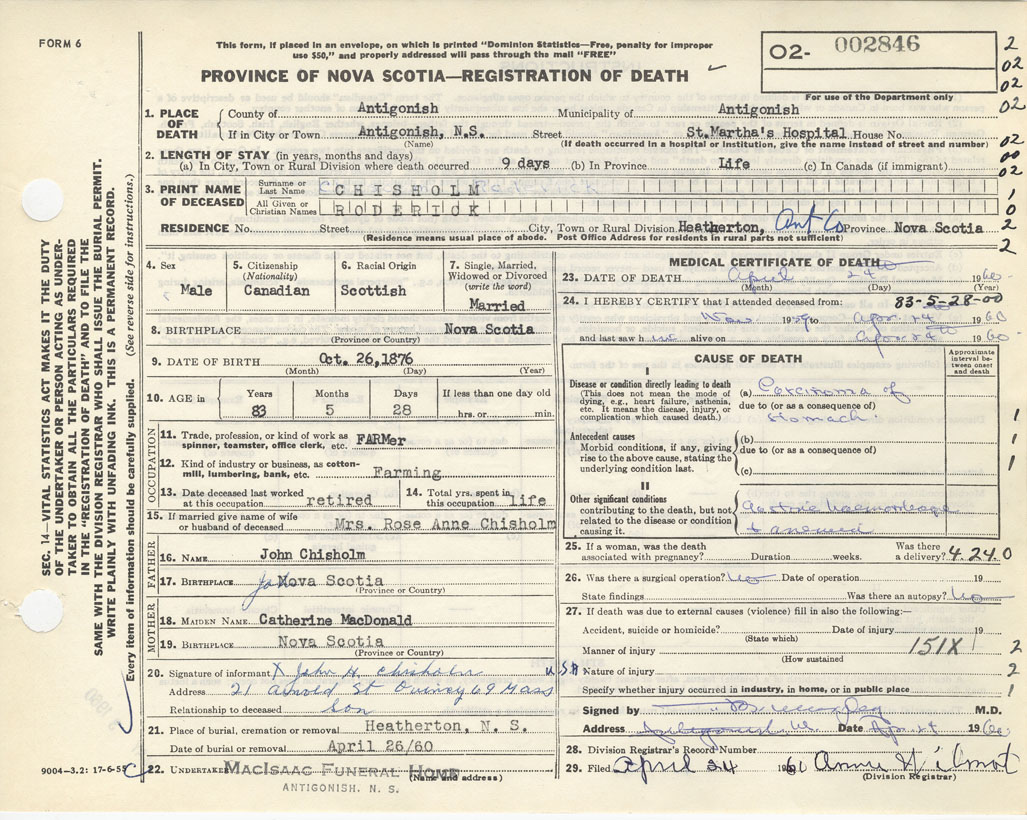 FORM 6
This form, if placed in an envelope, on which is printed "Dominion Statistics—Free, penalty for improper
use $50," and properly addressed will pass through the mail "FREE"
PROVINCE OF NOVA SCOTIA—REGISTRATION OF DEATH
02- 002846
For use of the Department only
2
02
02
02
1. PLACE OF DEATH
County of Antigonish Municipality of Antigonish
If in City or Town Antigonish, N.S. Street St.Martha's Hospital House No.
(Name) (If death occurred in a hospital or institution, give the name instead of street and number)
02
00
02
2. LENGTH OF STAY (in years, months and days)
(a) In City, Town or Rural Division where death occurred 9 days (b) In Province Life (c) In Canada (if immigrant)
3. PRINT NAME OF DECEASED
Surname or Last Name CHISHOLM
All Given or Christian Names RODERICK
1
0
2
2
RESIDENCE No. Street City, Town or Rural Division Heatherton, Ant Co Province Nova Scotia
(Residence means usual place of abode. Post Office Address for residents in rural parts not sufficient)
4. Sex
Male
5. Citizenship
(Nationality)
Canadian
6. Racial Origin
Scottish
7. Single, Married,
Widowed or Divorced
(write the word)
Married
8. BIRTHPLACE Nova Scotia
(Province or Country)
9. DATE OF BIRTH Oct. 26,1876
(Month) (Day) (Year)
10. AGE in
Years Months Days If less than one day old
83 5 28 hrs. or min.
OCCUPATION
11. Trade, profession, or kind of work as
spinner, teamster, office clerk, etc. FARMer
12. Kind of industry or business, as cotton-
mill, lumbering, bank, etc. Farming
13. Date deceased last worked
at this occupation retired
14. Total yrs. spent in
this occupation life
15. If married give name of wife
or husband of deceased Mrs. Rose Anne Chisholm
FATHER
16. NAME John Chisholm
17. BIRTHPLACE Nova Scotia
(Province or Country)
MOTHER
18. MAIDEN NAME Catherine MacDonald
19. BIRTHPLACE Nova Scotia
(Province or Country)
20. Signature of informant X John H. Chisholm USA
Address 21 Arnold St Quincy 69 Mass
Relationship to deceased Son
21. Place of burial, cremation or removal Heatherton, N. S.
Date of burial or removal April 26/60
22. UNDERTAKER MACISAAC FUNERAL HOME
(Name and address)
ANTIGONISH, N. S.
9004—3.2: 17-6-55
MEDICAL CERTIFICATE OF DEATH
23. DATE OF DEATH April 24 1960
(Month) (Day) (Year)
24. I HEREBY CERTIFY that I attended deceased from: 83-5-28-00
Nov. 1959 to Apr. 24 1960
and last saw h im alive on Apr 24th 1960
CAUSE OF DEATH
Approximate
interval be-
tween onset
and death
I
Disease or condition directly leading to death
(This does not mean the mode of
dying, e.g., heart failure, asthenia,
etc. It means the disease, injury, or
complication which caused death.)
(a) Carcinoma of
due to (or as a consequence of)
stomach
1
Antecedent causes
Morbid conditions, if any, giving
rise to the above cause, stating the
underlying condition last.
(b)
due to (or as a consequence of)
(c)
1
1
II
Other significant conditions
contributing to the death, but not
related to the disease or condition
causing it.
Gastric haemorrhage
+ anemia
25. If a woman, was the death
associated with pregnancy? Duration weeks. Was there
a delivery? 4.24.0
26. Was there a surgical operation? No Date of operation 19
State findings Was there an autopsy? No
27. If death was due to external causes (violence) fill in also the following:—
Accident, suicide or homicide? Date of injury 19
(State which)
Manner of injury 151X 2
(How sustained)
Nature of injury 2
Specify whether injury occurred in industry, in home, or in public place 1
Signed by M.D.
Address Antigonish Date Apr 24 1960
28. Division Registrar's Record Number
29. Filed April 24 1960 Annie Wilmot
(Division Registrar)
SEC. 14—VITAL STATISTICS ACT MAKES IT THE DUTY
OF THE UNDERTAKER OR PERSON ACTING AS UNDER-
TAKER TO OBTAIN ALL THE PARTICULARS REQUIRED
IN THE "REGISTRATION OF DEATH" AND FILE THE
SAME WITH THE DIVISION REGISTRAR WHO SHALL ISSUE THE BURIAL PERMIT.
WRITE PLAINLY WITH UNFADING INK. THIS IS A PERMANENT RECORD.
Every item of information should be carefully supplied. (See reverse side for instructions.)